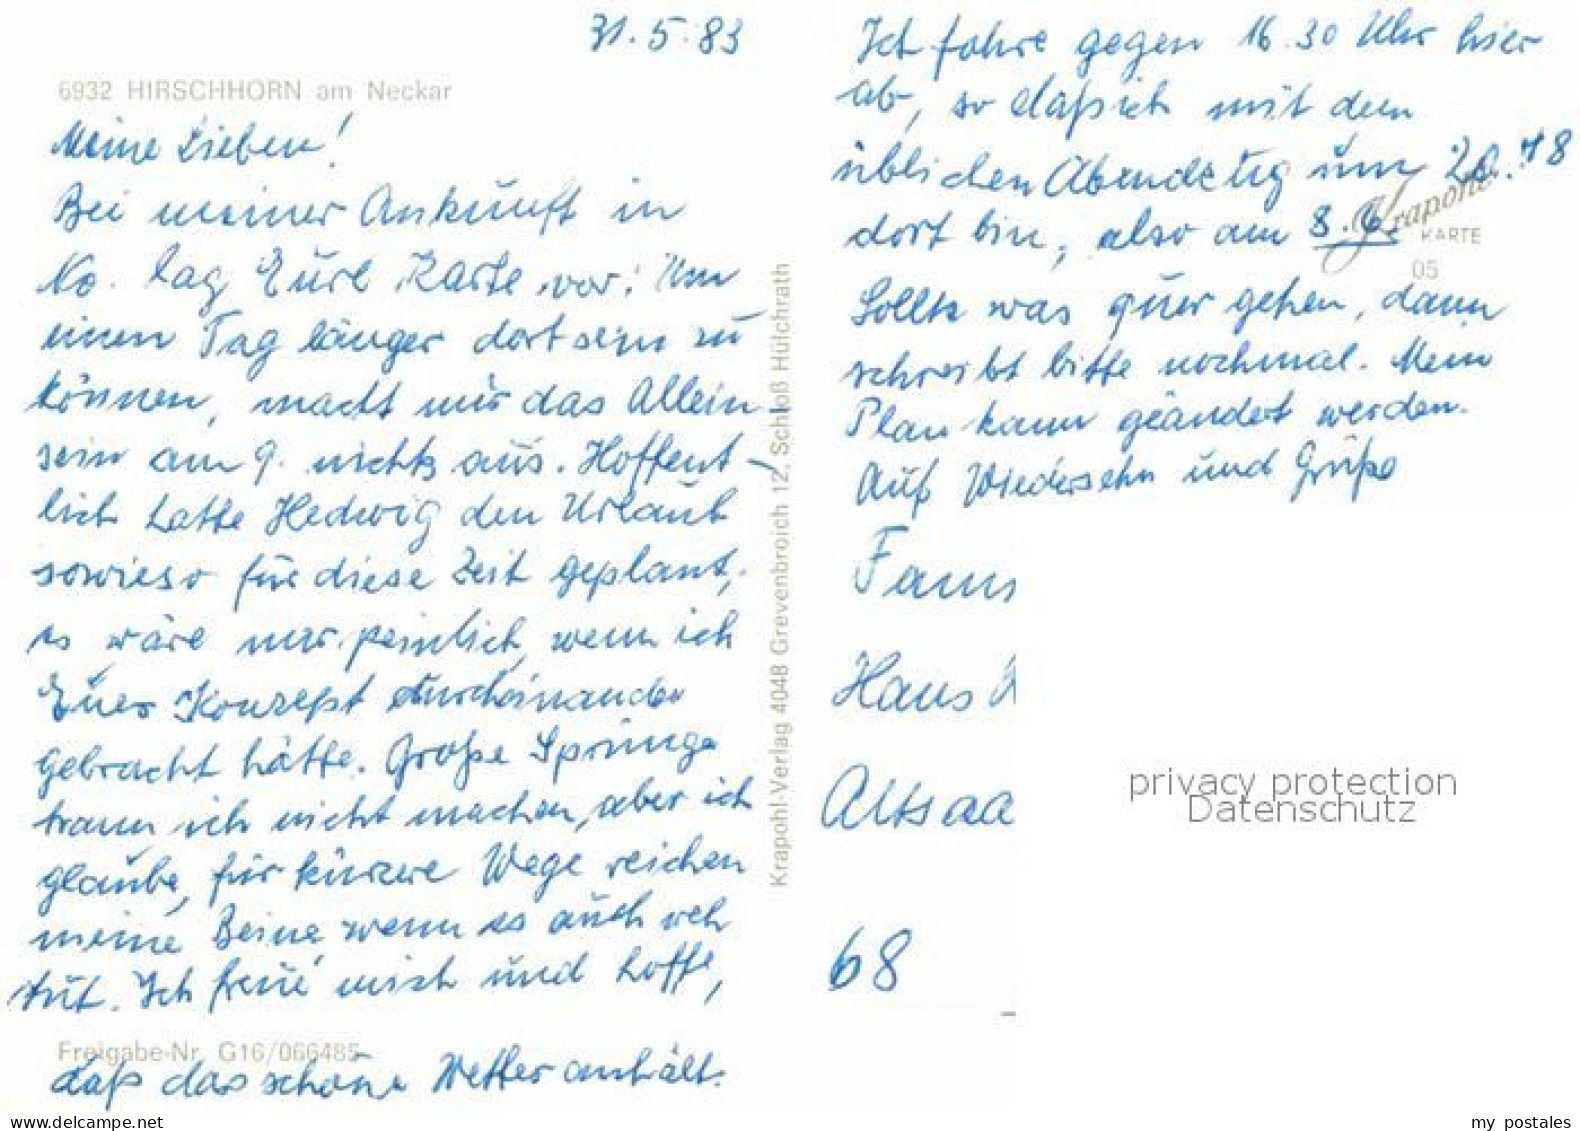 31.5.83
6932 HIRSCHHORN am Neckar
Meine Lieben!
Bei meiner Ankunft in
No. lag Eure Karte vor. Um
einen Tag länger dort sein zu
können, macht mir das Allein-
sein am 9. nichts aus. Hoffent-
lich hatte Hedwig den Urlaub
sowieso für diese Zeit geplant,
es wäre mir peinlich, wenn ich
Euer Konzept durcheinander
gebracht hätte. Große Sprünge
kann ich nicht machen, aber ich
glaube, für kürzere Wege reichen
meine Beine wenn es auch weh
tut. Ich freue mich und hoffe,
Freigabe-Nr. G16/066485
daß das schöne Wetter anhält.
Krapohl-Verlag 4048 Grevenbroich 12, Schloß Hülchrath
Ich fahre gegen 16.30 Uhr hier
ab, so daß ich mit dem
üblichen Abendzug um 20.18
dort bin, also am 8.6.
Krapohl
KARTE
05
Sollte was quer gehen, dann
schreibt bitte nochmal. Mein
Plan kann geändert werden.
Auf Wiedersehn und Grüße
Fam
Hans
Altsaa
68
privacy protection
Datenschutz
my postales
www.delcampe.net